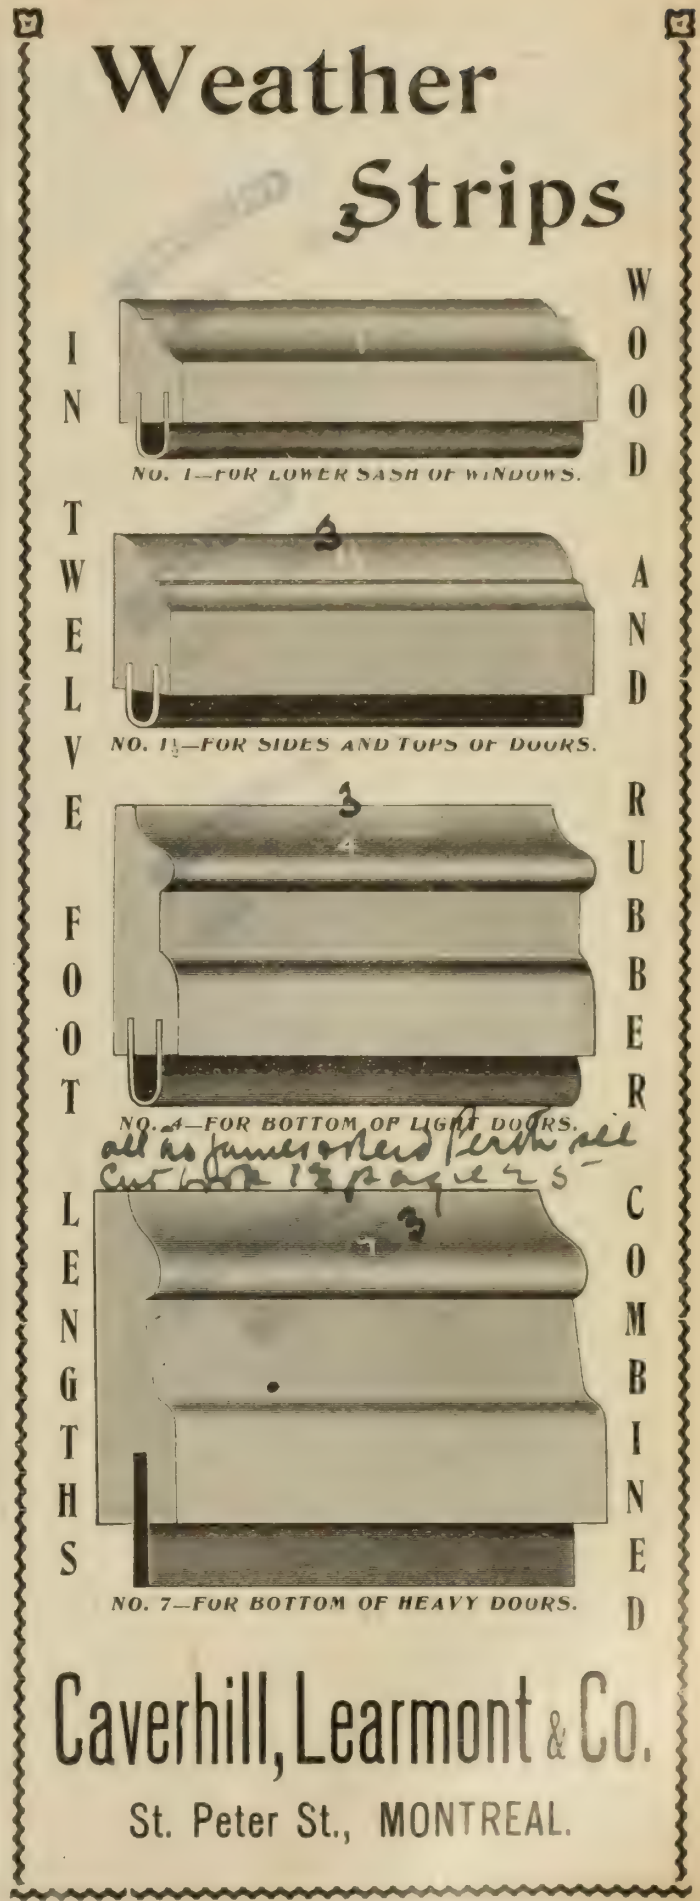 Weather
Strips
3
IN TWELVE FOOT LENGTHS
WOOD AND RUBBER COMBINED
1
NO. 1—FOR LOWER SASH OF WINDOWS.
3
NO. 1½—FOR SIDES AND TOPS OF DOORS.
3
4
NO. 4—FOR BOTTOM OF LIGHT DOORS.
all as James & Reid Perth see
Cut book 13 page 25
3
7
NO. 7—FOR BOTTOM OF HEAVY DOORS.
Caverhill, Learmont & Co.
St. Peter St., MONTREAL.